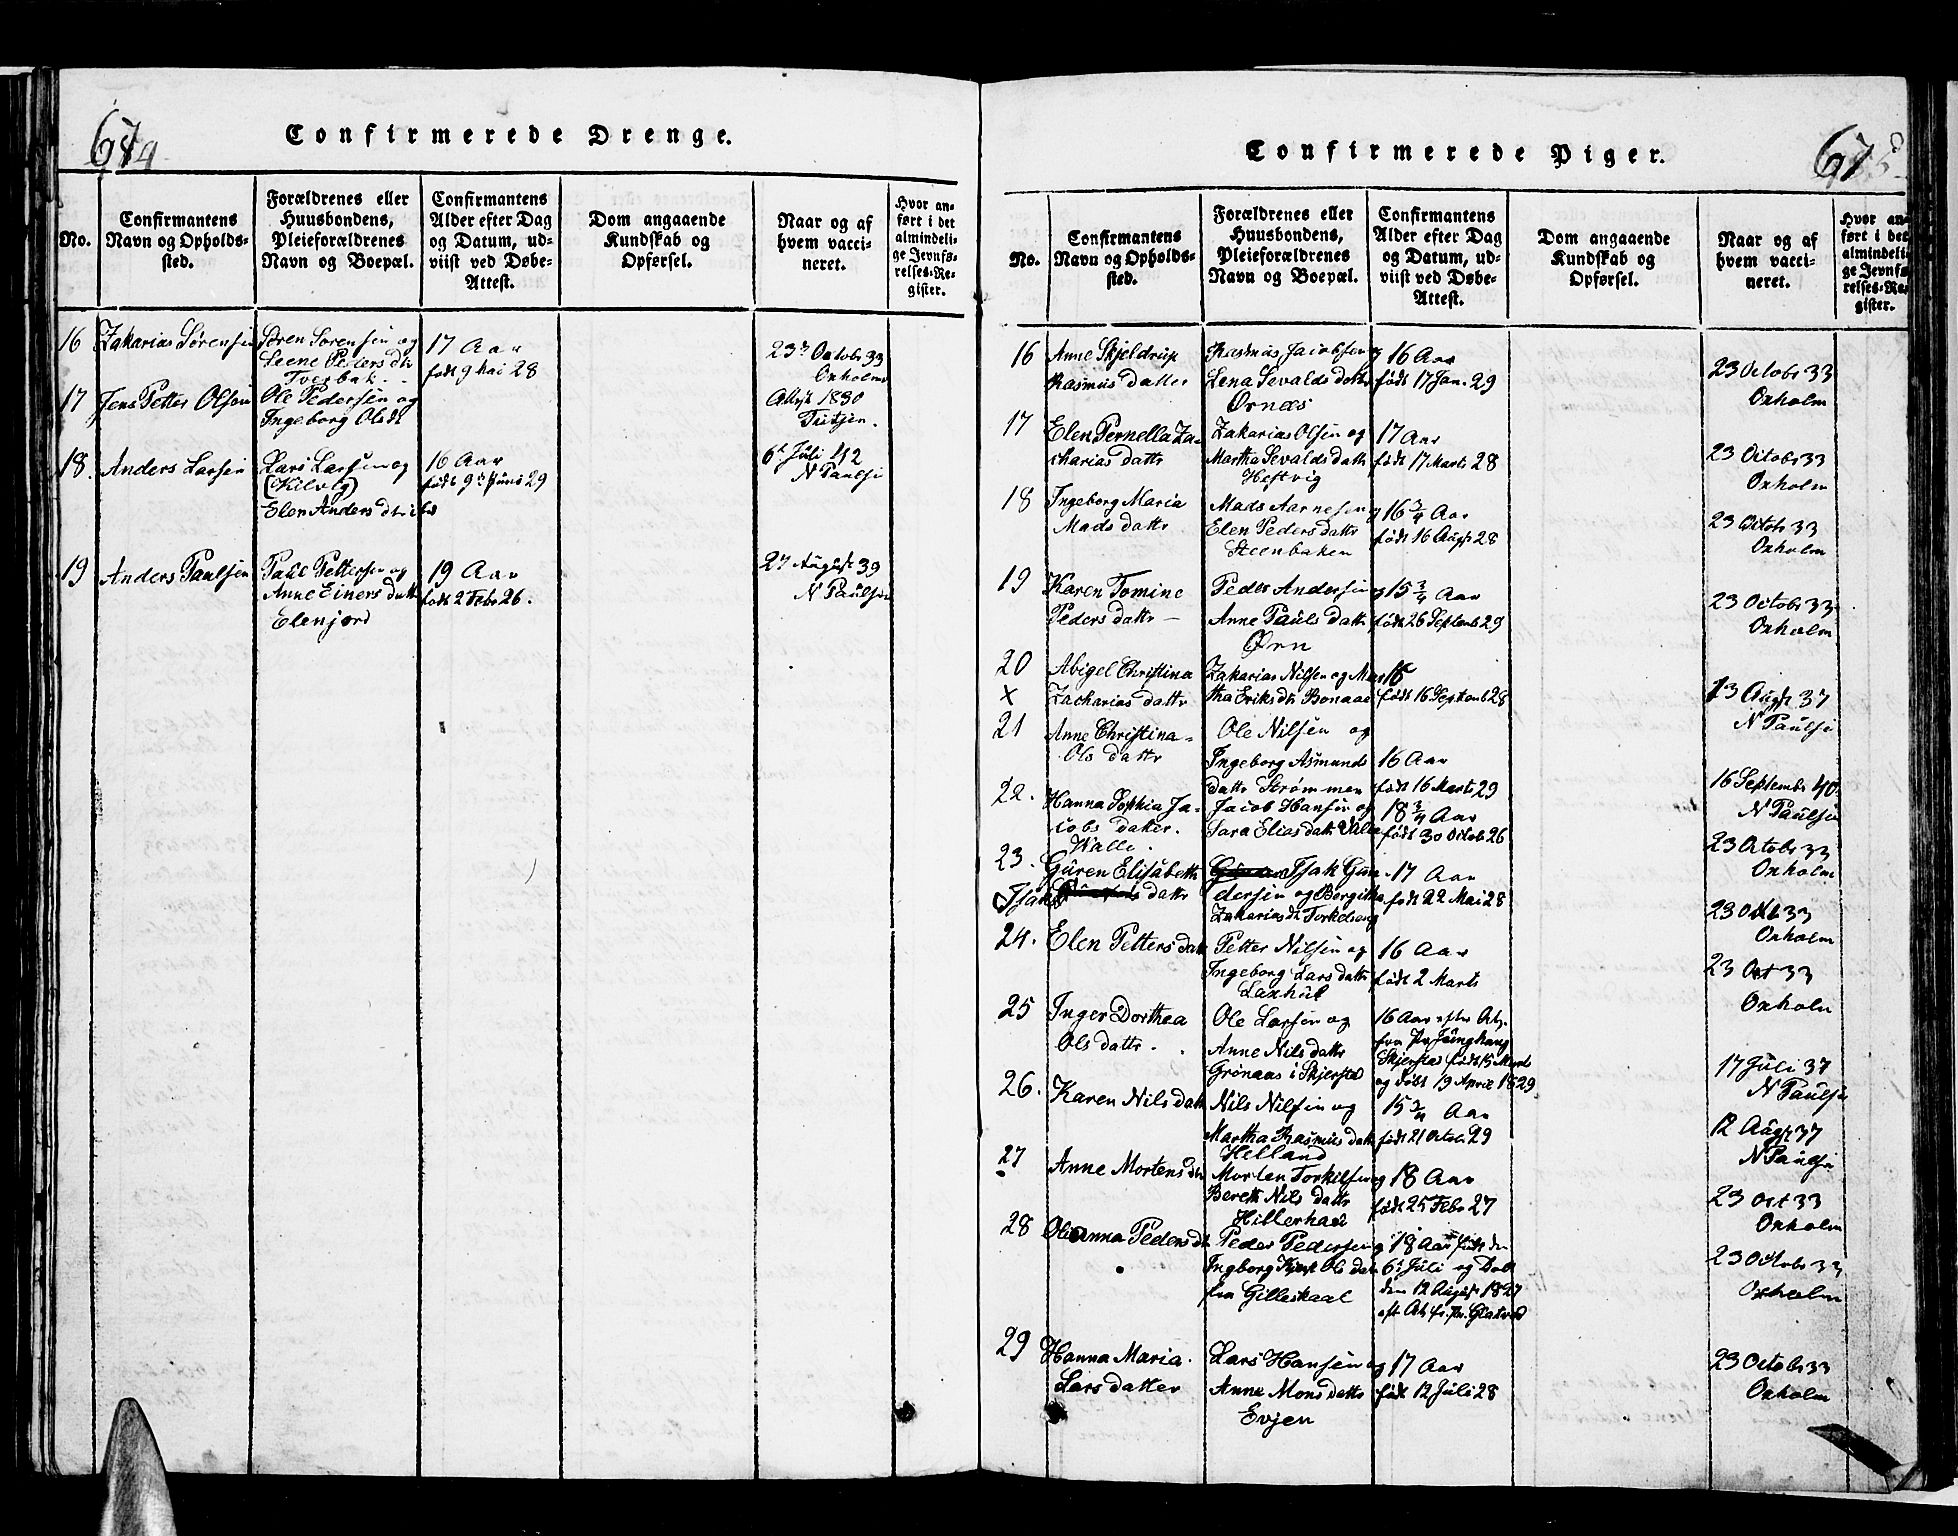 Confirmerede Drenge.
No.
Confirmantens
Navn og Opholds-
sted.
Forældrenes eller
Huusbondens,
Pleieforældrenes
Navn og Boepæl.
Confirmantens
Alder efter Dag
og Datum, ud-
viist ved Døbe-
Attest.
Dom angaaende
Kundskab og
Opførsel.
Naar og af
hvem vacci-
neret.
Hvor an-
ført i det
almindeli-
ge Jevnfø-
relses-Re-
gister.
16
Zakarias Sørensen
Søren Sørensen og
Leene Peders dtr
Tverbak
17 Aar
født 9 Mai 28
23 Octobr 33
Oxholm
17
Jens Petter Olsen
Ole Pedersen og
Ingeborg Olsdt
1830
18.
Anders Larsen
Lars Larsen og
(Kilvig)
Elen Anders dtr
16 Aar
født 9 Juni 29
6 Juli 42
N Paulsen
19
Anders Paulsen
Paul Pettersen og
Anne Einers datr
Elenjord
19 Aar
født 2 Febr 26.
27 August 39
N Paulsen
Confirmerede Piger.
67
No.
Confirmantens
Navn og Opholds-
sted.
Forældrenes eller
Huusbondens,
Pleieforældrenes
Navn og Boepæl.
Confirmantens
Alder efter Dag
og Datum, ud-
viist ved Døbe-
Attest.
Dom angaaende
Kundskab og
Opførsel.
Naar og af
hvem vacci-
neret.
Hvor an-
ført i det
almindeli-
ge Jevnfø-
relses-Re-
gister.
16
Anne Skjeldrup
Rasmus datter
Rasmus Jacobsen og
Lena Sevalds datr
Ørnæs
16 Aar
født 17 Jan. 29
23 Octobr 33
Oxholm
17
Elen Pernella Za-
charias datr
Zakarias Olsen og
Martha Sevalds datr
Heftvig
17 Aar
født 17 Marts 28
23 Octobr 33
Oxholm
18
Ingeborg Maria
Mads datr
Mads Aarnesen og
Elen Peders datr
Steenbaken
16 3/4 Aar
født 16 Augt 28
23 Octobr 33
Oxholm
19
Karen Tomine
Peders datr —
Peder Andersen og
Anne Pauls datr
Ørn
15 3/4 Aar
født 26 Septemb 29
23 Octobr 33
Oxholm
20
X
Abigel Christina
Zacharias datr
Zakarias Nilsen og Mar
tha Eriks dtr Bonaae
16
født 16 Septemb 28
13 Augst 37
N Paulsen
21
Anne Christina
Ols datr
Ole Nilsen og
Ingeborg Asmunds
datr Strømmen
16 Aar
født 16 Marts 29
16 Septembr 40
N Paulsen
22.
Hanna Sophia Ja-
cobs datter.
Walle.
Jacob Hansen og
Sara Elias datr Valle
18 3/4 Aar
født 30 Octobr 26
23 Octobr 33
Oxholm
23.
Guren Elisabeth
Isaks datr
Isak Gun
dersen og Bergitha
Zakarias dt Torkelseng
17 Aar
født 22 Mai 28
23 Oct 33
Oxholm
24.
Elen Petters datr
Petter Nilsen og
Ingeborg Lars datr
Laxhul
16 Aar
født 2 Marts
23 Oct 33
Oxholm
25
Inger Dorthea
Ols datr.
Ole Larsen og
Anne Nils datr
Grønaas i Skjerstad
16 Aar efter At.
fra Junghang
Skjerstad født 15 Marts
og døbt 19 April 1829
17 Juli 37
N Paulsen
26.
Karen Nils datr
Nils Nilsen og
Martha Rasmus datr
Helland
15 3/4 Aar
født 21 Octobr 29
12 Augt 37
N Paulsen
27
Anne Mortens dtr
Morten Torkilsen og
Bereth Nils datr
Hillerhaae
18 Aar
født 25 Febr 27
23 Oct 33
Oxholm
28
Olianna Peders dt
Peder Pedersen og
Ingborg Ols datr
fra Gilleskaal
18 Aar født den
6 Juli og Døbt
den 12 August 1827
23 Octobr 33
Oxholm
29
Hanna Maria
Lars datter
Lars Hansen og
Anne Mons datr
Evjen
17 Aar
født 12 Juli 28
23 Octobr 33
Oxholm